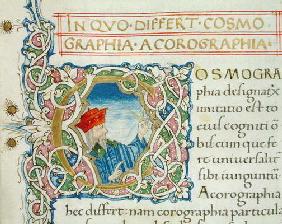 IN QVO DIFFERT COSMO
GRAPHIA A COROGRAPHIA.
OSMOGRA
phia designatx
imitatio est to
cius cogniti o
bis cum que fe
re universalit
sibi iunguntur
A corographia
hec differt nam corographia particula